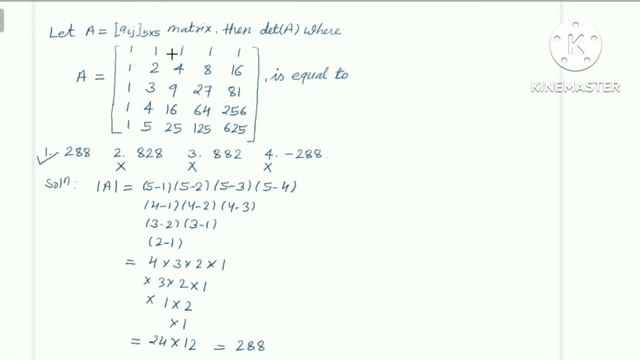 Let A = [aij]5x5 matrix. then det(A) where
A = [ 1 1 1 1 1
1 2 4 8 16
1 3 9 27 81
1 4 16 64 256
1 5 25 125 625 ] , is equal to
✓1. 288 2. 828 3. 882 4. -288.
x x x
Soln: |A| = (5-1)(5-2)(5-3)(5-4)
(4-1)(4-2)(4-3)
(3-2)(3-1)
(2-1)
= 4 x 3 x 2 x 1
x 3 x 2 x 1
x 1 x 2
x 1
= 24 x 12 = 288
KINEMASTER